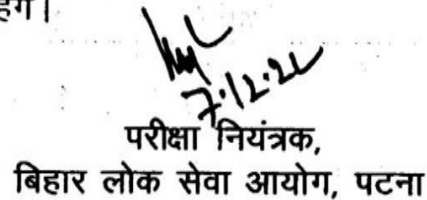 7.12.22
परीक्षा नियंत्रक,
बिहार लोक सेवा आयोग, पटना